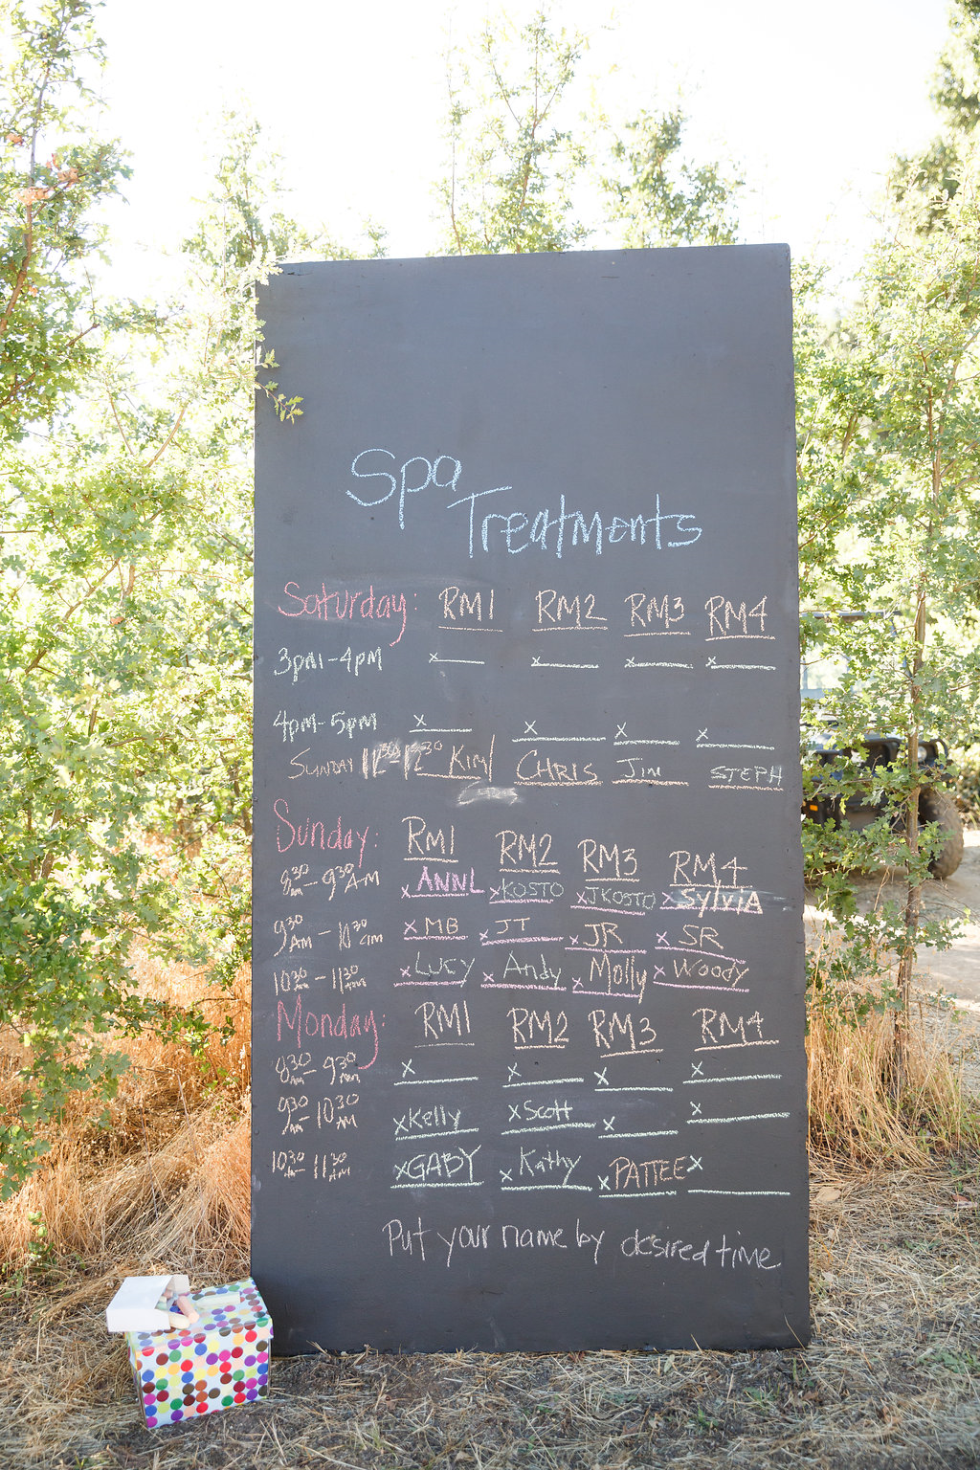 Spa
Treatments
Saturday: RM1 RM2 RM3 RM4
3pm-4pm x x x x
4pm-5pm x x x x
Sunday 11:30-12:30 Kim CHRIS Jim STEPH
Sunday: RM1 RM2 RM3 RM4
8:30-9:30 AM x ANNL x KOSTO x JKOSTO x Sylvia
9:30 AM - 10:30 am x MB x JT x JR x SR
10:30 - 11:30 x LUCY x Andy x Molly x Woody
Monday: RM1 RM2 RM3 RM4
8:30 am - 9:30 am x x x x
9:30 am - 10:30 AM x Kelly x Scott x x
10:30 - 11:30 AM x GABY x Kathy x PATTEE x
Put your name by desired time